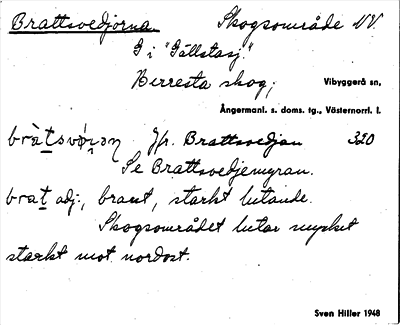 Brattsvedjorna. Skogsområde NV
G i "Gällstasj."
Birresta skog; Vibyggerå sn,
Ångermanl. s. doms. tg., Västernorrl. l.
Jfr. Brattsvedjan 320
Se Brattsvedjemyran.
brat adj:, brant, starkt lutande.
Skogsområdet lutar mycket
starkt mot nordost.
Sven Hiller 1948